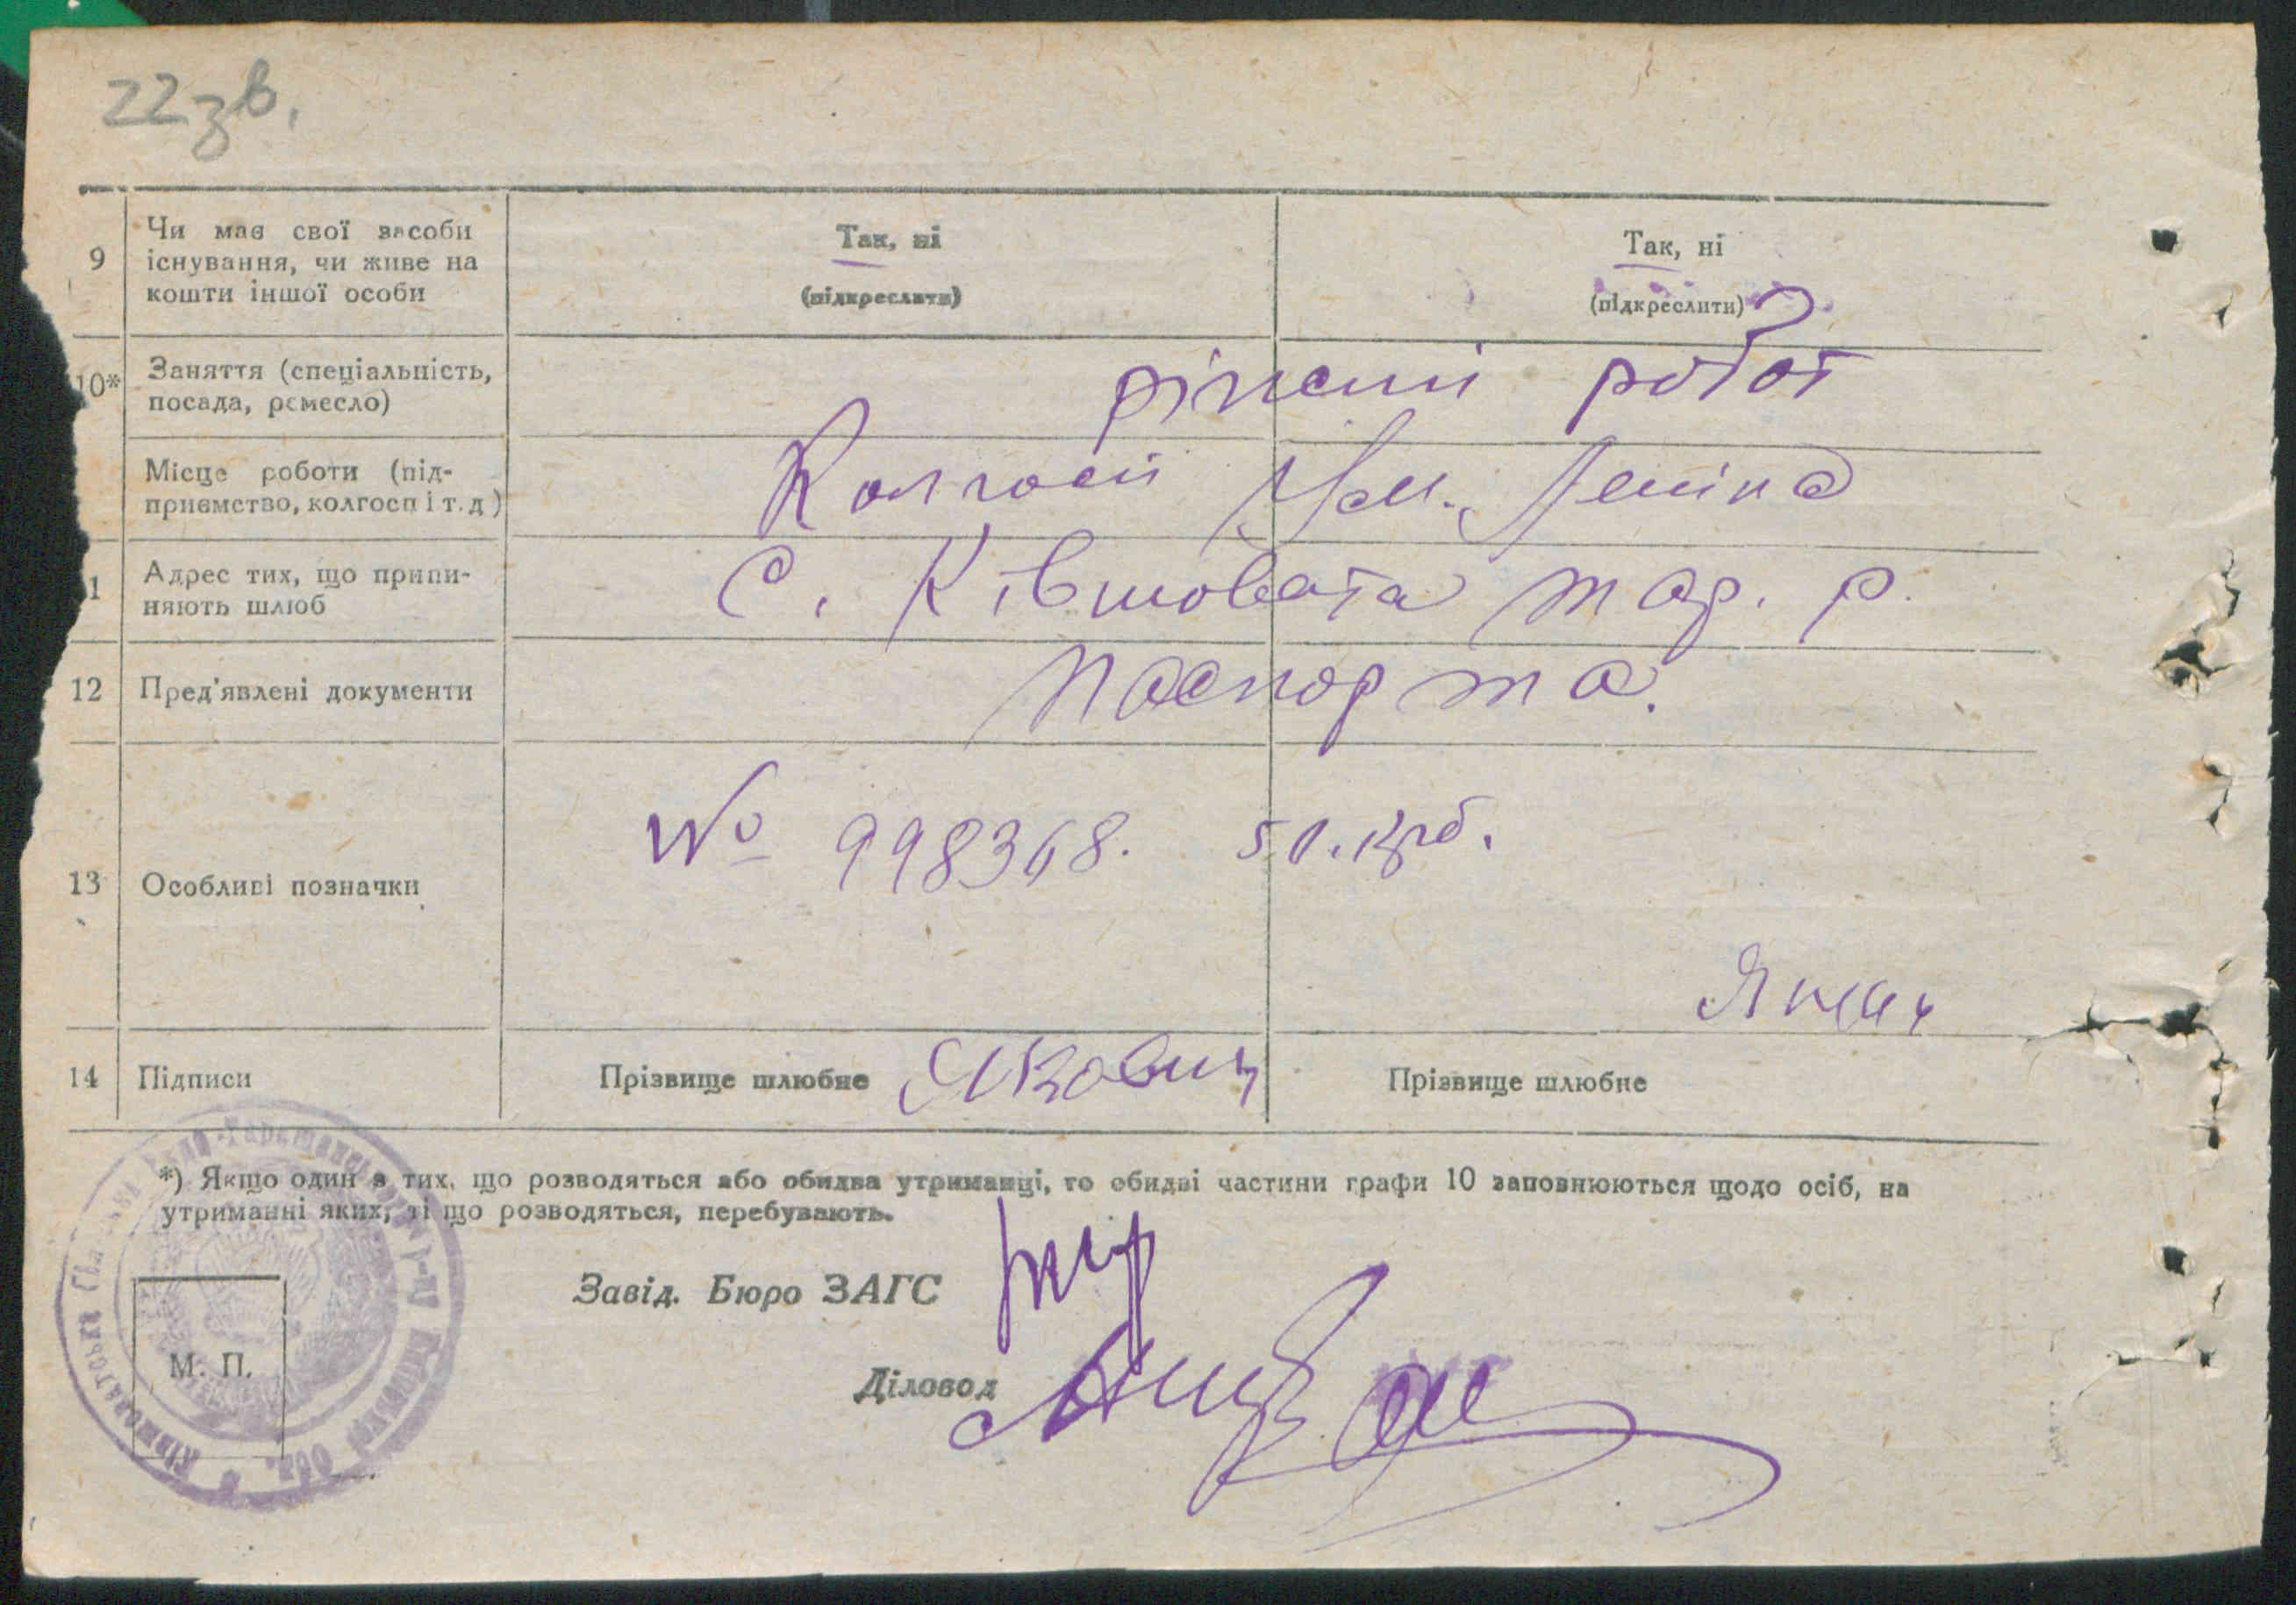 22зв.
9 Чи має свої засоби існування, чи живе на кошти іншої особи
Так, ні
(підкреслити)
Так, ні
(підкреслити)
10* Заняття (спеціальність, посада, ремесло)
робот
Місце роботи (підприємство, колгосп і т. д)
Колгосп Ім. Леніна
1 Адрес тих, що припиняють шлюб
С. Ківшовата тар. р.
12 Пред'явлені документи
Паспорта.
13 Особливі позначки
№ 998368. 50. крб.
14 Підписи
Прізвище шлюбне
Прізвище шлюбне
*) Якщо один з тих, що розводяться або обидва утриманці, то обидві частини графи 10 заповнюються щодо осіб, на
утриманні яких, ті що розводяться, перебувають.
Завід. Бюро ЗАГС
Діловод
М. П.